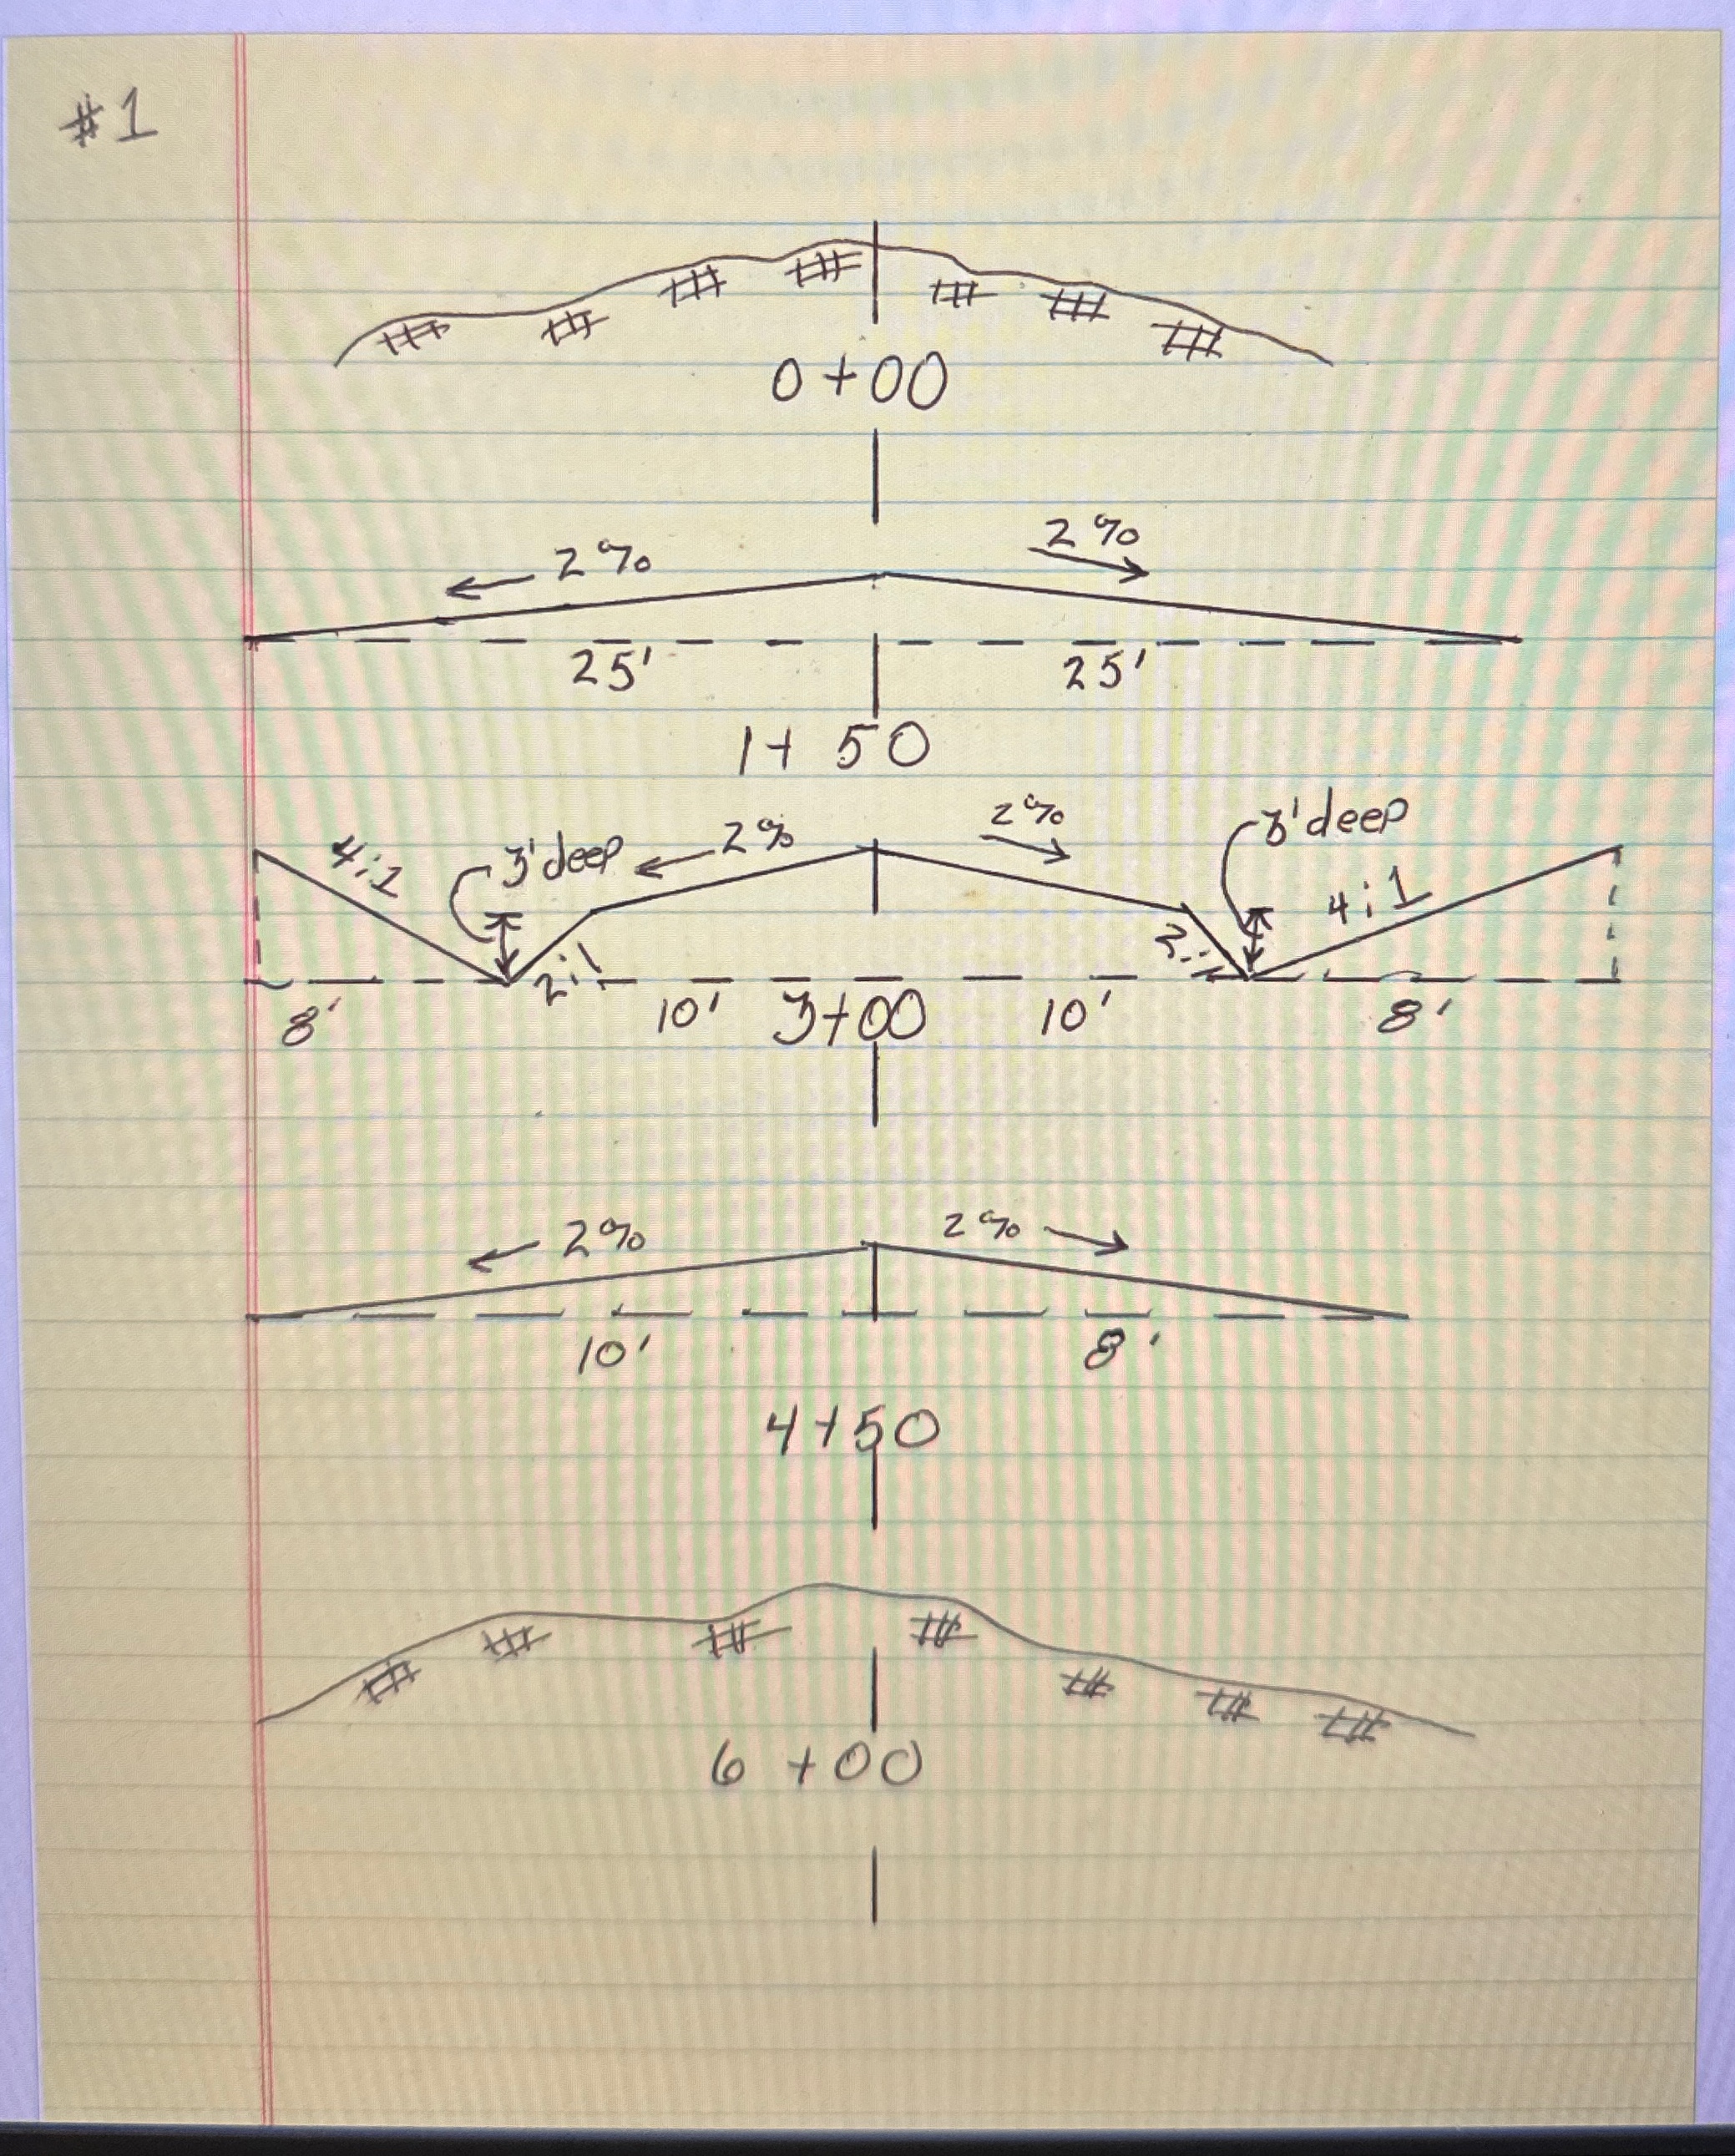 #1
0+00
2% 2%
25' 25'
1+50
4:1 3'deep 2% 2% 3'deep 4:1
2:1 2:1
8' 10' 3+00 10' 8'
2% 2%
10' 8'
4+50
6+00